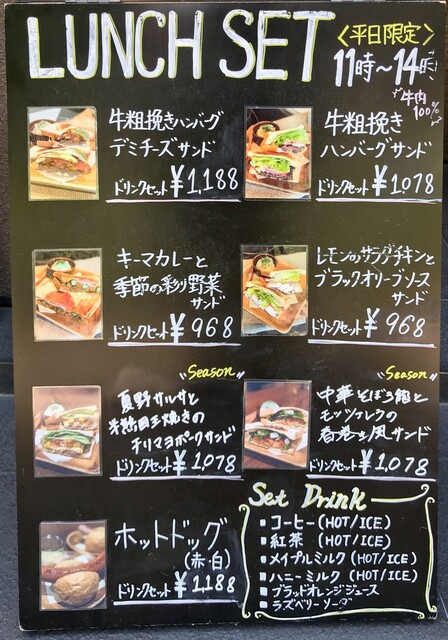 LUNCH SET
〈平日限定〉
11時〜14時
牛肉
100%
牛粗挽きハンバーグ
デミチーズサンド
ドリンクセット ¥1,188
牛粗挽き
ハンバーグサンド
ドリンクセット ¥1078
キーマカレーと
季節の彩り野菜
サンド
ドリンクセット ¥968
レモンのサラダチキンと
ブラックオリーブソース
サンド
ドリンクセット ¥968
Season
夏野サルサと
半熟目玉焼きの
チリマヨポークサンド
ドリンクセット ¥1,078
Season
中華そぼろ餡と
モッツァレラの
春巻き風サンド
ドリンクセット ¥1,078
ホットドッグ
(赤・白)
ドリンクセット ¥1,188
Set Drink
■コーヒー(HOT/ICE)
■紅茶 (HOT/ICE)
■メイプルミルク(HOT/ICE)
■ハニーミルク(HOT/ICE)
■ブラッドオレンジジュース
■ラズベリーソーダ